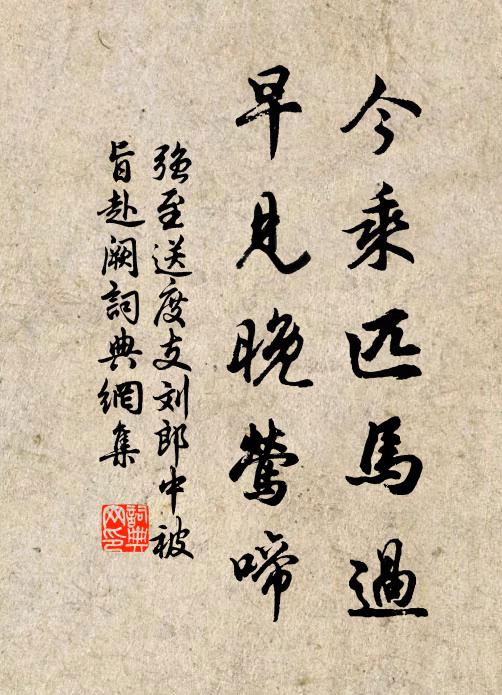 今乘匹馬過
早見晚鶯啼
強至送度支刘郎中被
旨赴阙詞典網集
詞典
网印